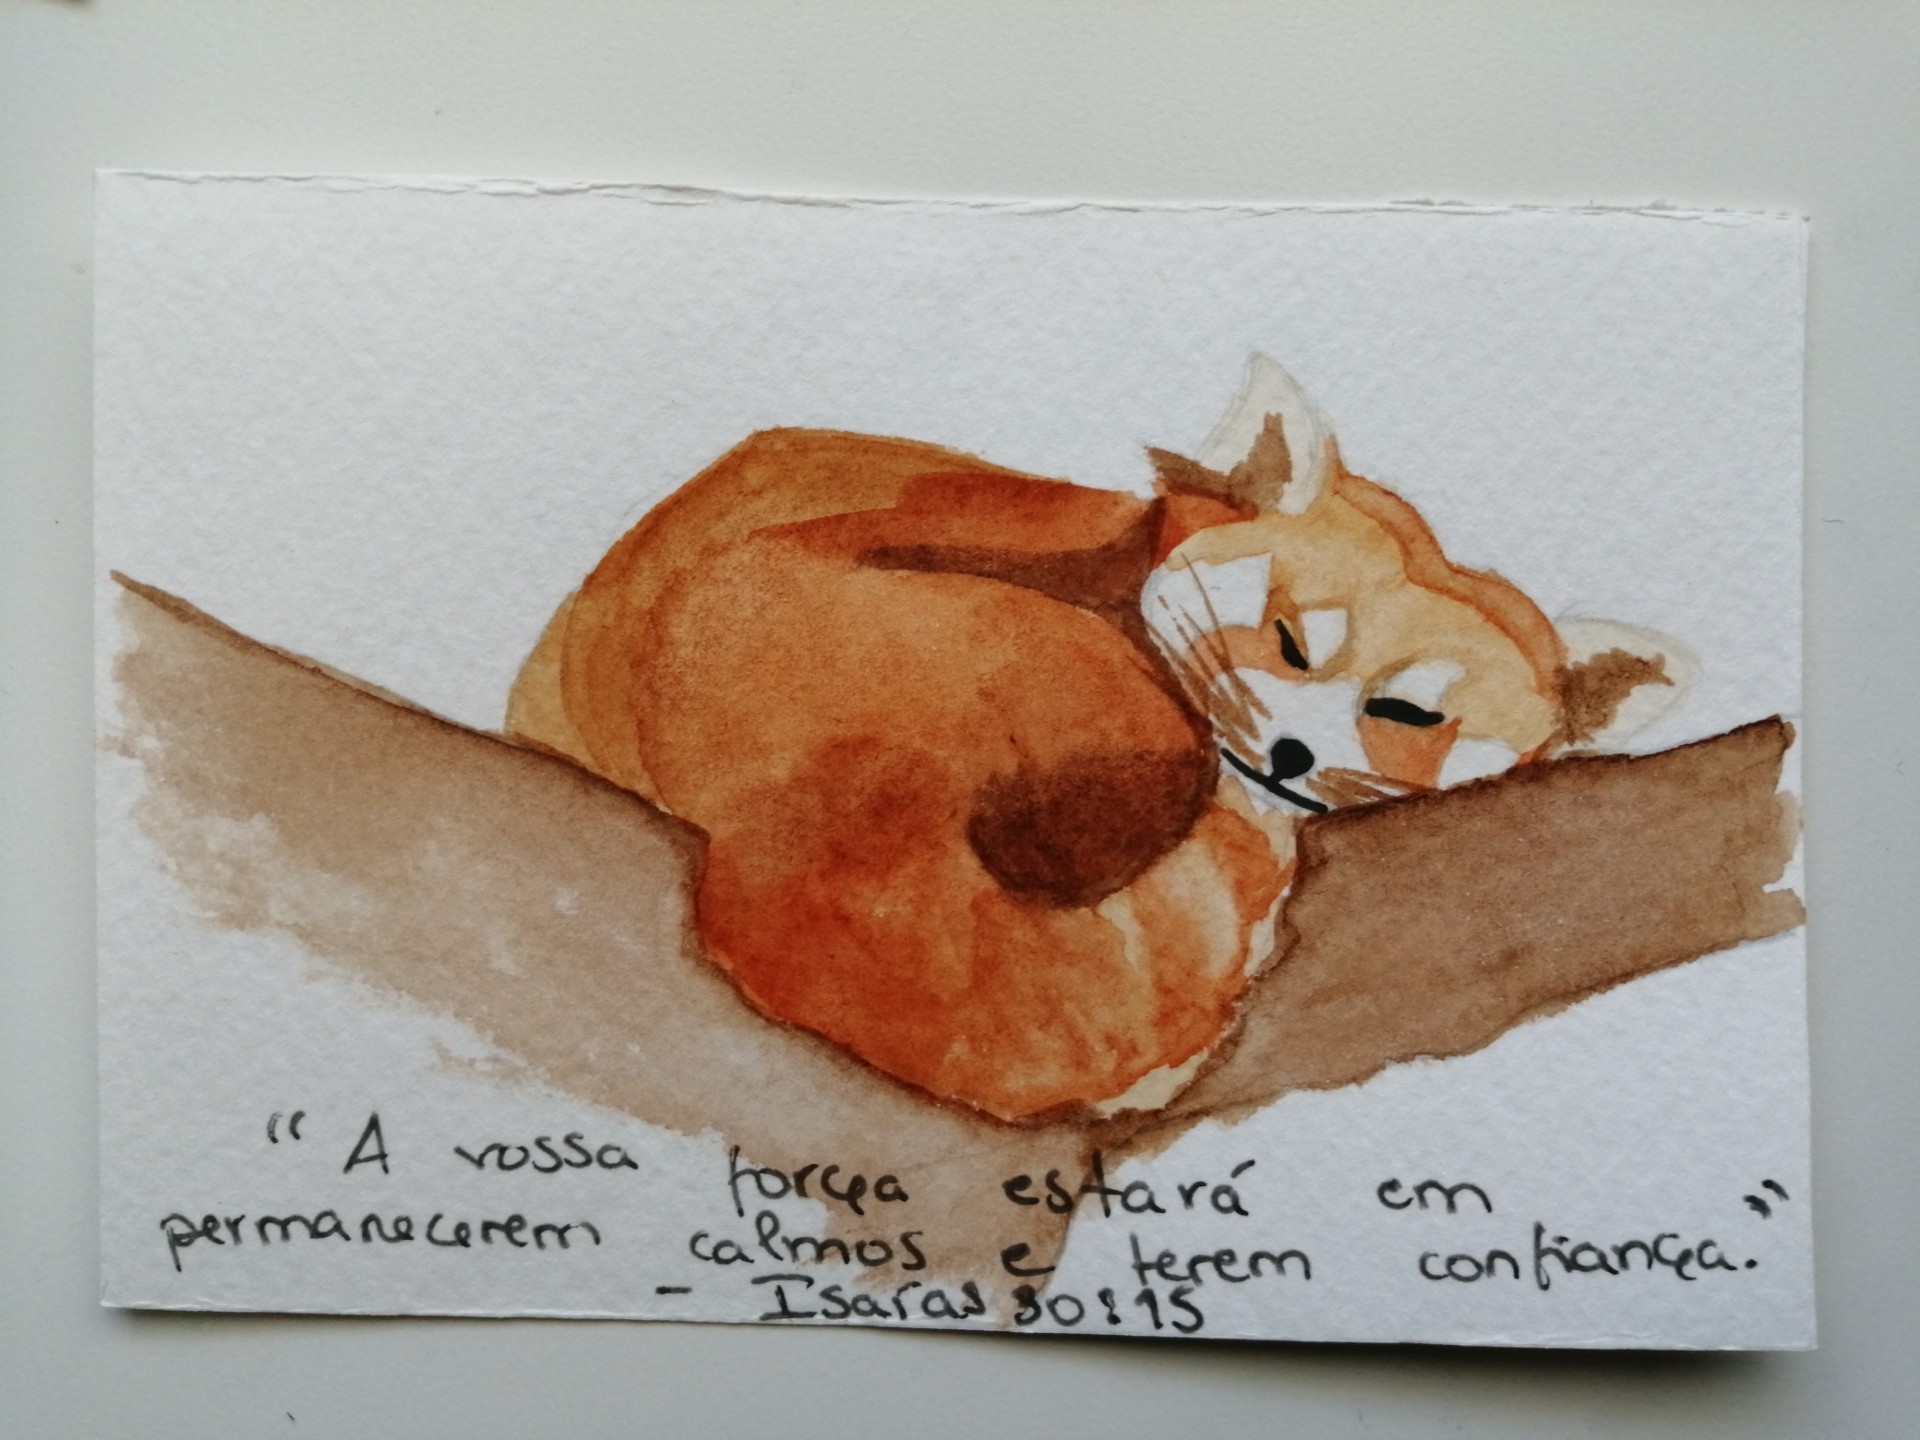 “ A vossa força estará em
permanecerem calmos e terem confiança.”
- Isaías 30:15